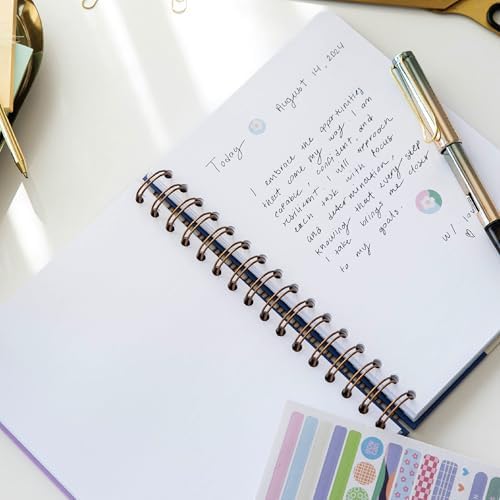 August 14, 2024
Today
I embrace the opportunities
that come my way. I am
capable, confident, and
resilient. I will approach
each task with focus
and determination,
knowing that every step
I take brings me closer
to my goals.
w/